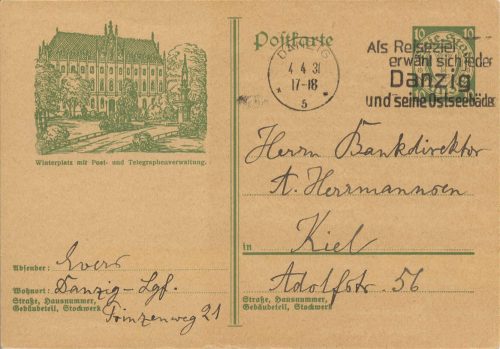 Winterplatz mit Post- und Telegraphenverwaltung.
Absender: Evers
Wohnort: Danzig-Lgf.
Straße, Hausnummer,
Gebäudeteil, Stockwerk
Prinzenweg 21
Postkarte
10 10
DANZIG
4.4.31
17-18
* 5 *
Als Reiseziel
erwähl sich jeder
Danzig
und seine Ostseebäder
Herrn Bankdirektor
A. Herrmannsen
in Kiel
Adolfstr. 56
Straße, Hausnummer,
Gebäudeteil, Stockwerk